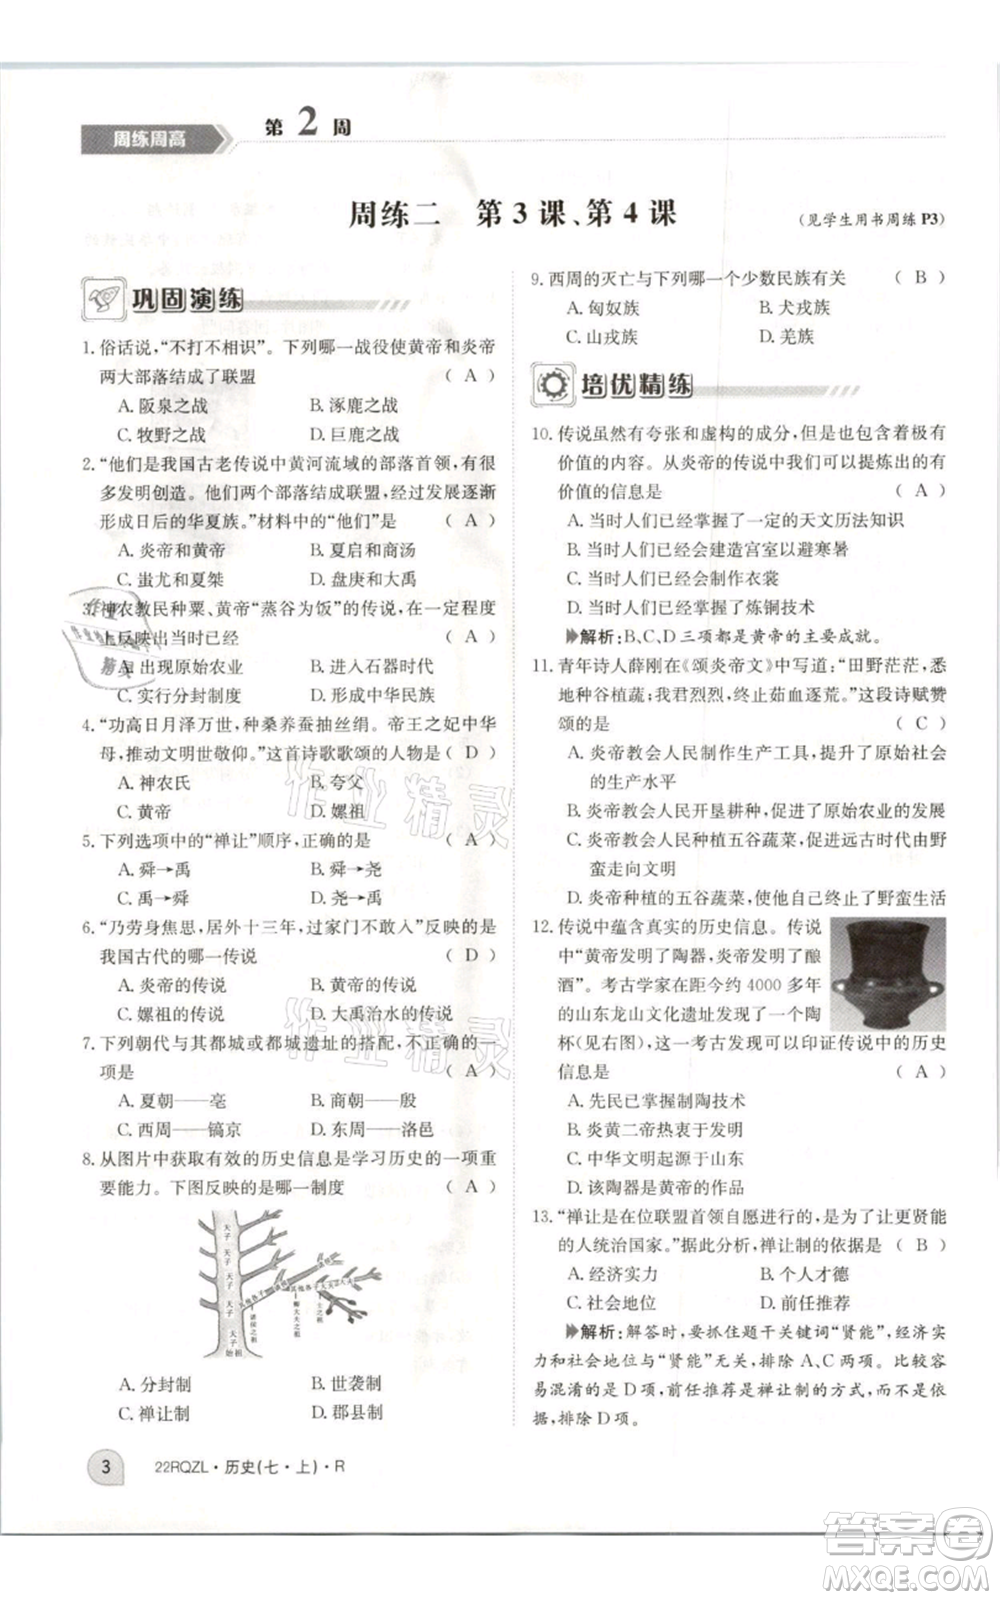 周练周高
第2周
周练二 第3课、第4课
(见学生用书周练P3)
巩固演练
1. 俗话说，“不打不相识”。下列哪一战役使黄帝和炎帝
两大部落结成了联盟 ( A )
A. 阪泉之战 B. 涿鹿之战
C. 牧野之战 D. 巨鹿之战
2. “他们是我国古老传说中黄河流域的部落首领，有很
多发明创造。他们两个部落结成联盟，经过发展逐渐
形成日后的华夏族。”材料中的“他们”是 ( A )
A. 炎帝和黄帝 B. 夏启和商汤
C. 蚩尤和夏桀 D. 盘庚和大禹
3. 神农教民种粟、黄帝“蒸谷为饭”的传说，在一定程度
上反映出当时已经 ( A )
A. 出现原始农业 B. 进入石器时代
C. 实行分封制度 D. 形成中华民族
4. “功高日月泽万世，种桑养蚕抽丝绢。帝王之妃中华
母，推动文明世敬仰。”这首诗歌歌颂的人物是 ( D )
A. 神农氏 B. 夸父
C. 黄帝 D. 嫘祖
5. 下列选项中的“禅让”顺序，正确的是 ( A )
A. 舜→禹 B. 舜→尧
C. 禹→舜 D. 尧→禹
6. “乃劳身焦思，居外十三年，过家门不敢入”反映的是
我国古代的哪一传说 ( D )
A. 炎帝的传说 B. 黄帝的传说
C. 嫘祖的传说 D. 大禹治水的传说
7. 下列朝代与其都城或都城遗址的搭配，不正确的一
项是 ( A )
A. 夏朝——亳 B. 商朝——殷
C. 西周——镐京 D. 东周——洛邑
8. 从图片中获取有效的历史信息是学习历史的一项重
要能力。下图反映的是哪一制度 ( A )
天子
天子
天子
天子
天子
始祖
诸侯之祖
卿大夫之祖
士之祖
A. 分封制 B. 世袭制
C. 禅让制 D. 郡县制
9. 西周的灭亡与下列哪一个少数民族有关 ( B )
A. 匈奴族 B. 犬戎族
C. 山戎族 D. 羌族
培优精练
10. 传说虽然有夸张和虚构的成分，但其中也包含着有
价值的内容。从炎帝的传说中我们可以提炼出的有
价值的信息是 ( A )
A. 当时人们已经掌握了一定的天文历法知识
B. 当时人们已经会建造宫室以避寒暑
C. 当时人们已经会制作衣裳
D. 当时人们已经掌握了炼铜技术
解析：B、C、D三项都是黄帝的主要成就。
11. 青年诗人薛刚在《颂炎帝文》中写道：“田野茫茫，悉
地种谷植蔬；我君烈烈，更王止茹血逐荒。”这段诗赋赞
颂的是 ( C )
A. 炎帝教会人民制作生产工具，提升了原始社会
的生产水平
B. 炎帝教会人民开垦耕种，促进了原始农业的发展
C. 炎帝教会人民种植五谷蔬菜，促使远古时代由野
蛮走向文明
D. 炎帝种植的五谷蔬菜，使他自己脱离了野蛮生活
12. 传说中蕴含真实的历史信息。传说
中“黄帝发明了陶器，炎帝发明了酿
酒”。考古学家在距今约 4000 多年
的山东龙山文化遗址发现了大量的陶
杯(见右图)，这一考古发现可以印证传说中的历史
信息是 ( A )
A. 先民已掌握制陶技术
B. 炎黄二帝热衷于发明
C. 中华文明起源于山东
D. 该陶器是黄帝的作品
13. “禅让是在位联盟首领自愿进行的，是为了让更贤能
的人统治国家。”据此分析，禅让制的依据是 ( B )
A. 经济实力 B. 个人才德
C. 社会地位 D. 前任推荐
解析：解答时，要抓住题干关键词“贤能”，经济实
力和社会地位与“贤能”无关，排除A、C两项。比较容
易混淆的是D项，前任推荐是禅让的方式，而不是依
据，排除D项。
3
22RQZL·历史(七·上)·R
作业精灵
作业精灵
答案圈
MXQE.COM